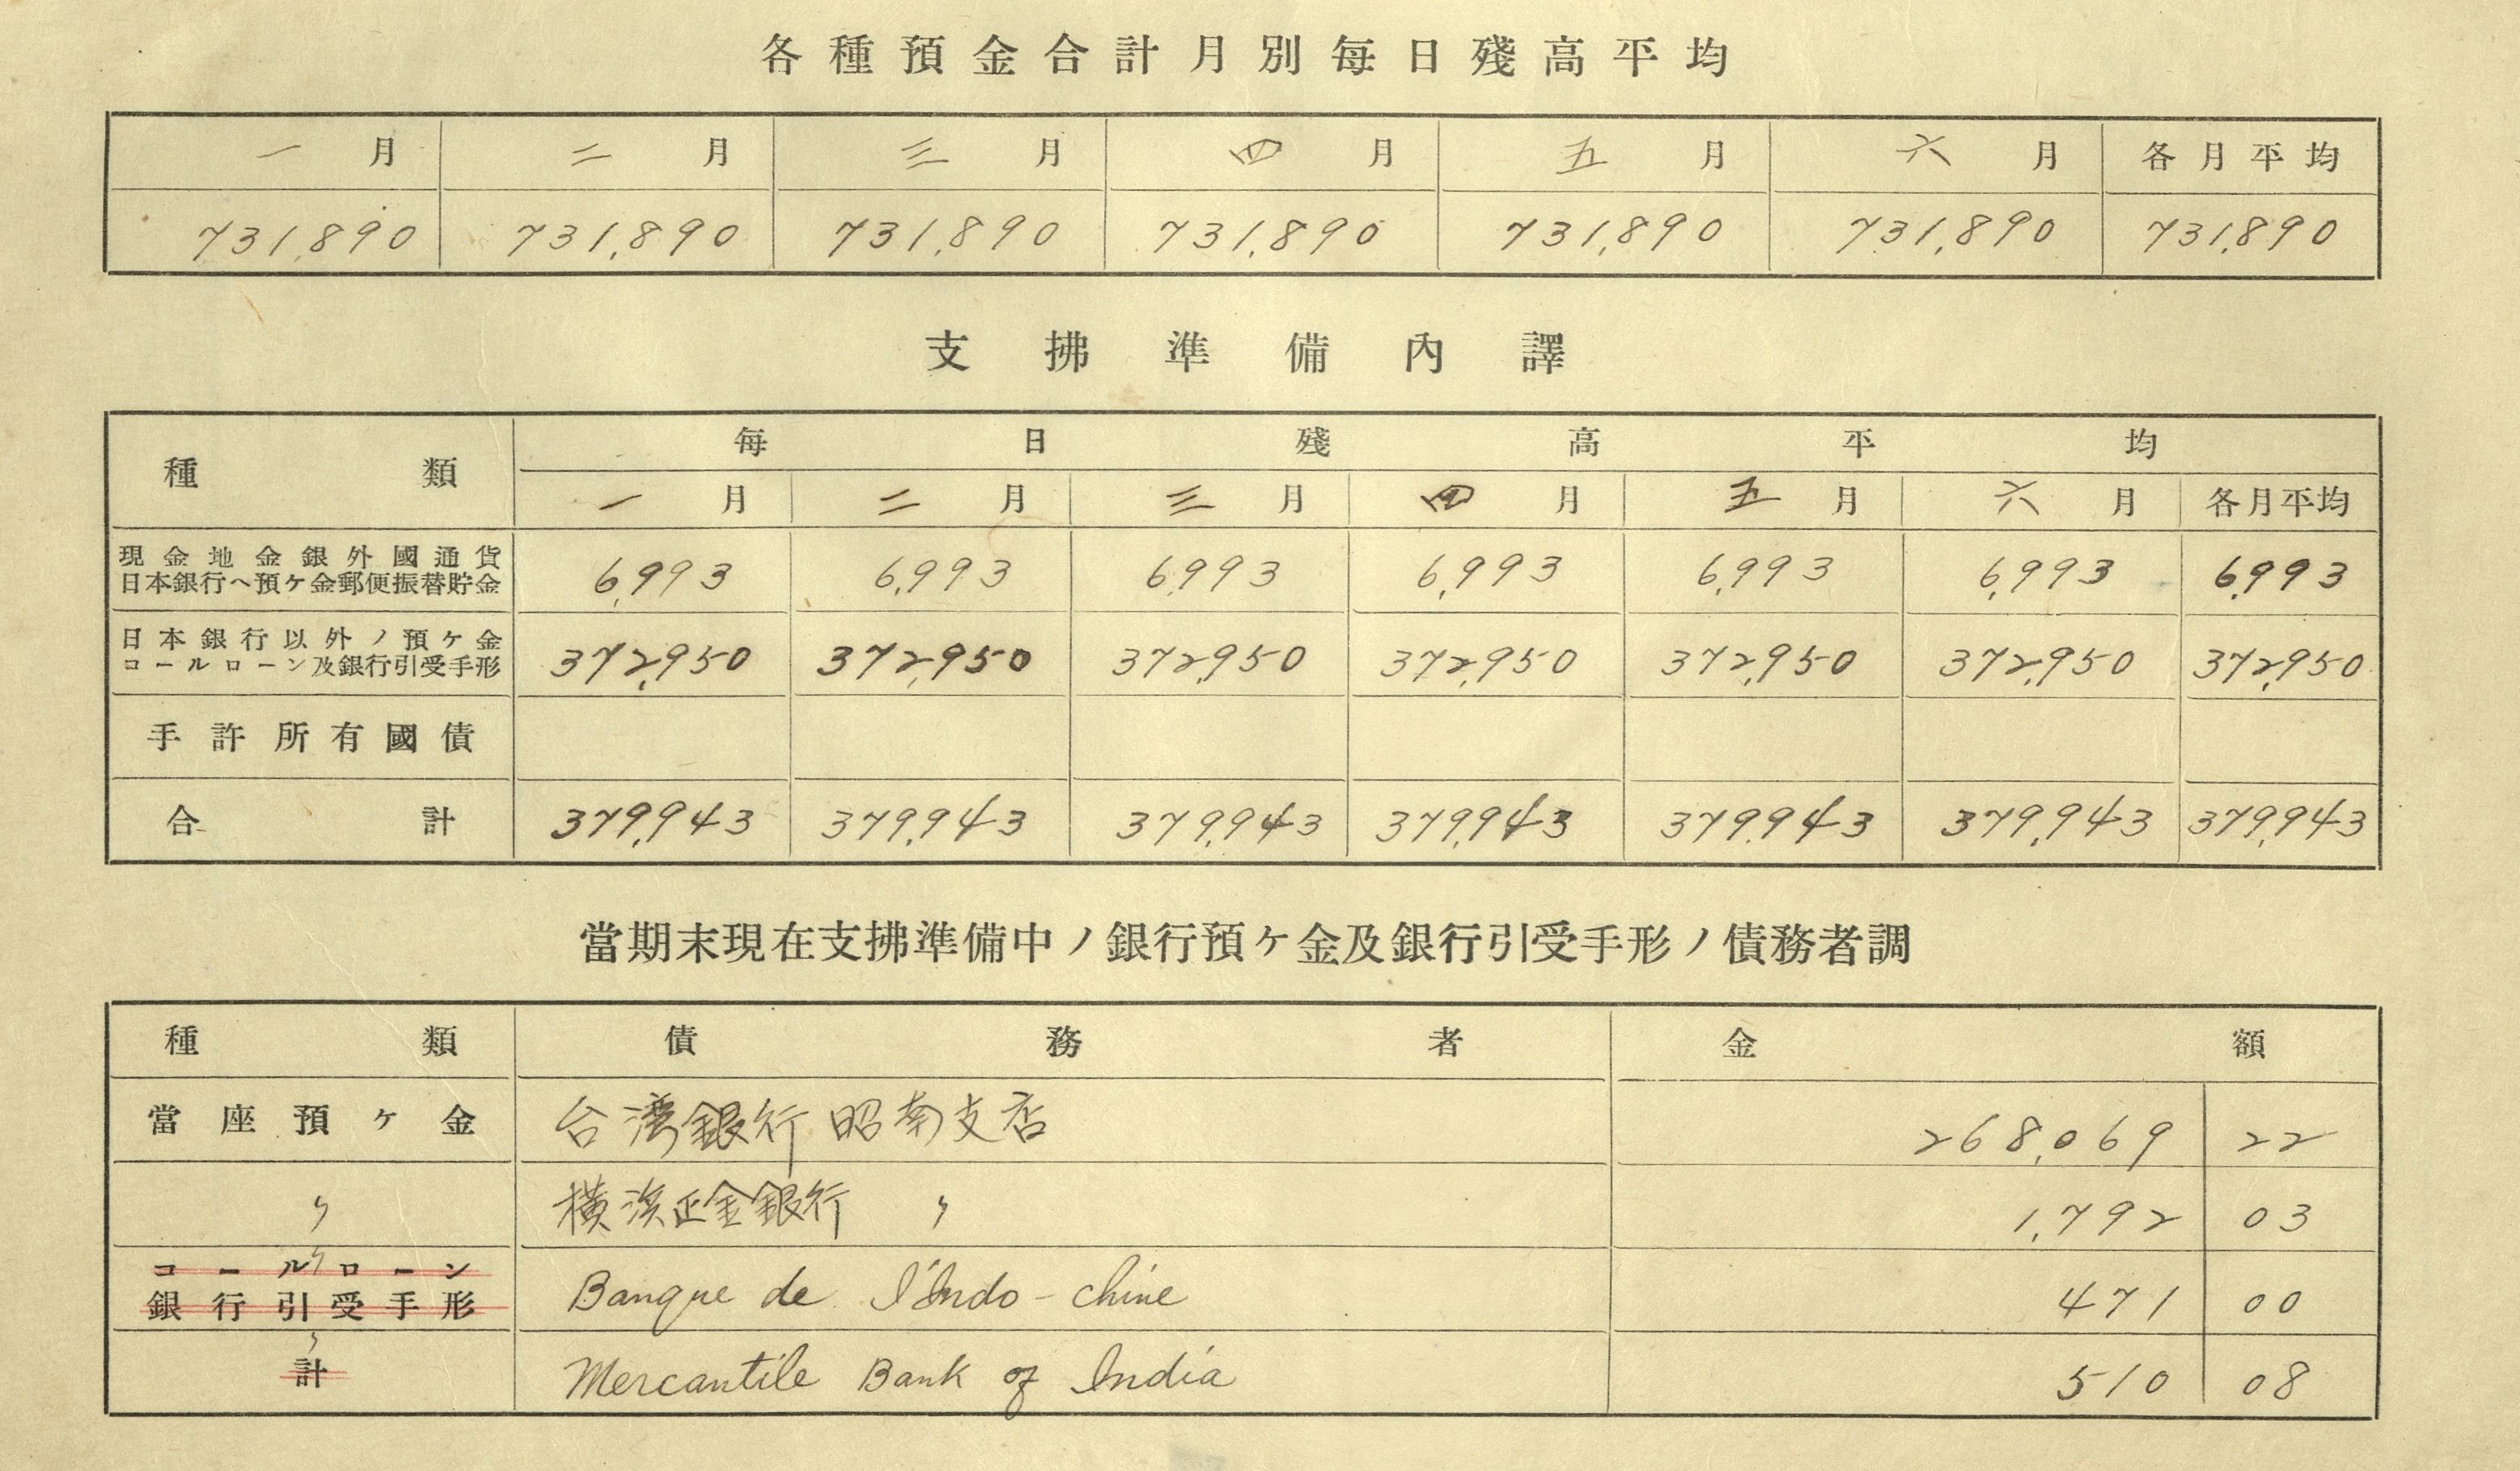 各種預金合計月別每日殘高平均
一月 二月 三月 四月 五月 六月 各月平均
731,890 731,890 731,890 731,890 731,890 731,890 731,890
支拂準備內譯
種類 每日殘高平均
一月 二月 三月 四月 五月 六月 各月平均
現金地金銀外國通貨
日本銀行ヘ預ケ金郵便振替貯金 6,993 6,993 6,993 6,993 6,993 6,993 6,993
日本銀行以外ノ預ケ金
コールローン及銀行引受手形 372,950 372,950 372,950 372,950 372,950 372,950 372,950
手許所有國債
合計 379,943 379,943 379,943 379,943 379,943 379,943 379,943
當期末現在支拂準備中ノ銀行預ケ金及銀行引受手形ノ債務者調
種類 債務者 金額
當座預ケ金 台湾銀行昭南支店 268,069 22
〃 横浜正金銀行 〃 1,792 03
〃
コールローン
銀行引受手形 Banque de l'Indo-chine 471 00
〃
計 Mercantile Bank of India 510 08